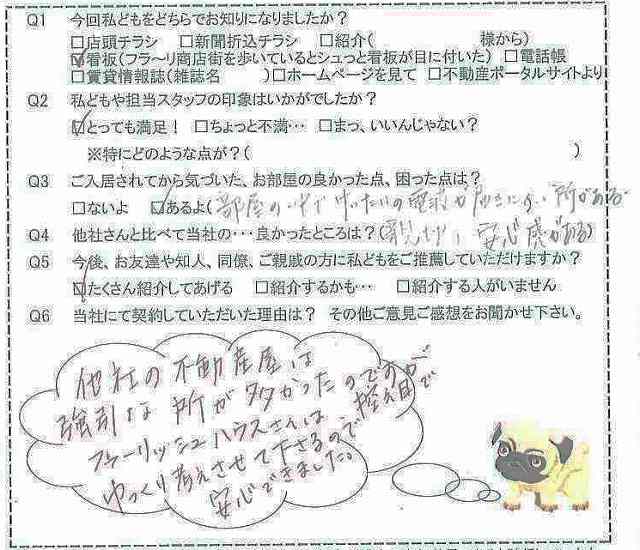 Q1 今回私どもをどちらでお知りになりましたか？
□店頭チラシ □新聞折込チラシ □紹介( 様から)
☑看板(フラ～リ商店街を歩いているとシュっと看板が目に付いた) □電話帳
□賃貸情報誌(雑誌名 )□ホームページを見て □不動産ポータルサイトより
Q2 私どもや担当スタッフの印象はいかがでしたか？
☑とっても満足！ □ちょっと不満… □まっ、いいんじゃない？
※特にどのような点が？( )
Q3 ご入居されてから気づいた、お部屋の良かった点、困った点は？
□ないよ ☑あるよ(部屋の中でけいたいの電波が届きにくい所がある
Q4 他社さんと比べて当社の・・・良かったところは？(親しみ 安心感がある)
Q5 今後、お友達や知人、同僚、ご親戚の方に私どもをご推薦していただけますか？
☑たくさん紹介してあげる □紹介するかも… □紹介する人がいません
Q6 当社にて契約していただいた理由は？ その他ご意見ご感想をお聞かせ下さい。
他社の不動産屋は
強引な所が多かったのですが、
フラーリッシュハウスさんは、控え目で
ゆっくり考えさせて下さるので、
安心できました。